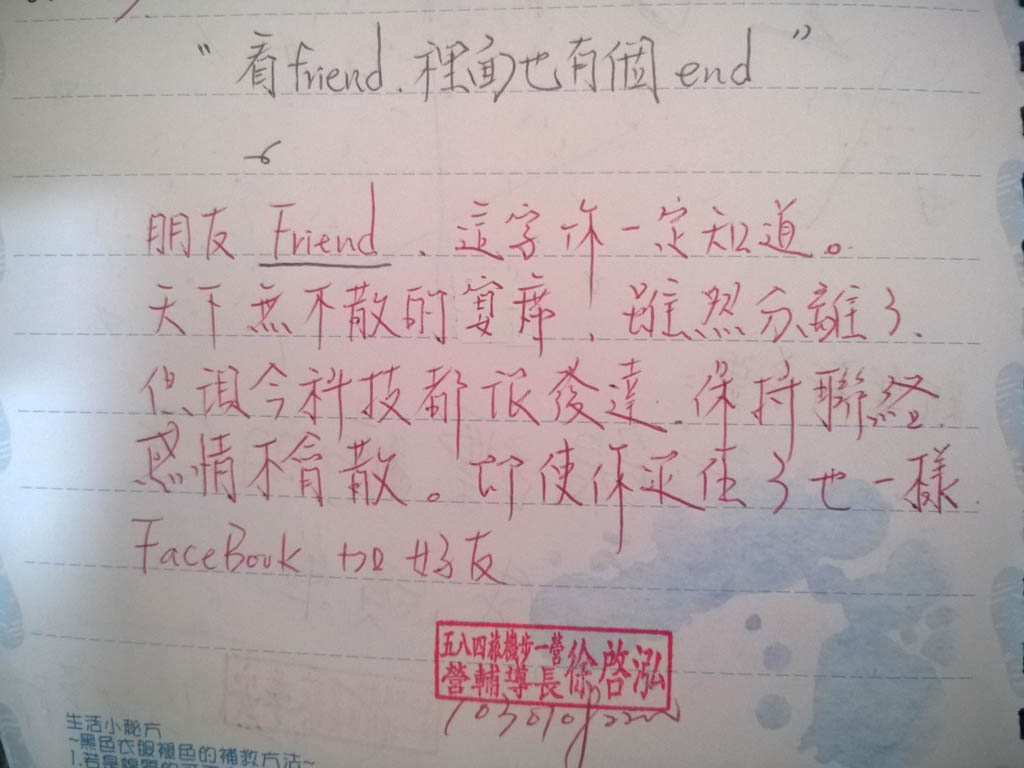 “看friend. 裡面也有個 end”
朋友 Friend、這字你一定知道。
天下無不散的宴席、雖然分離了、
但現今科技都很發達、保持聯絡、
感情不會散。即使你退伍了也一樣
FaceBook 加好友
五八四旅機步一營
營輔導長徐啓泓
生活小秘方
~黑色衣服褪色的補救方法~